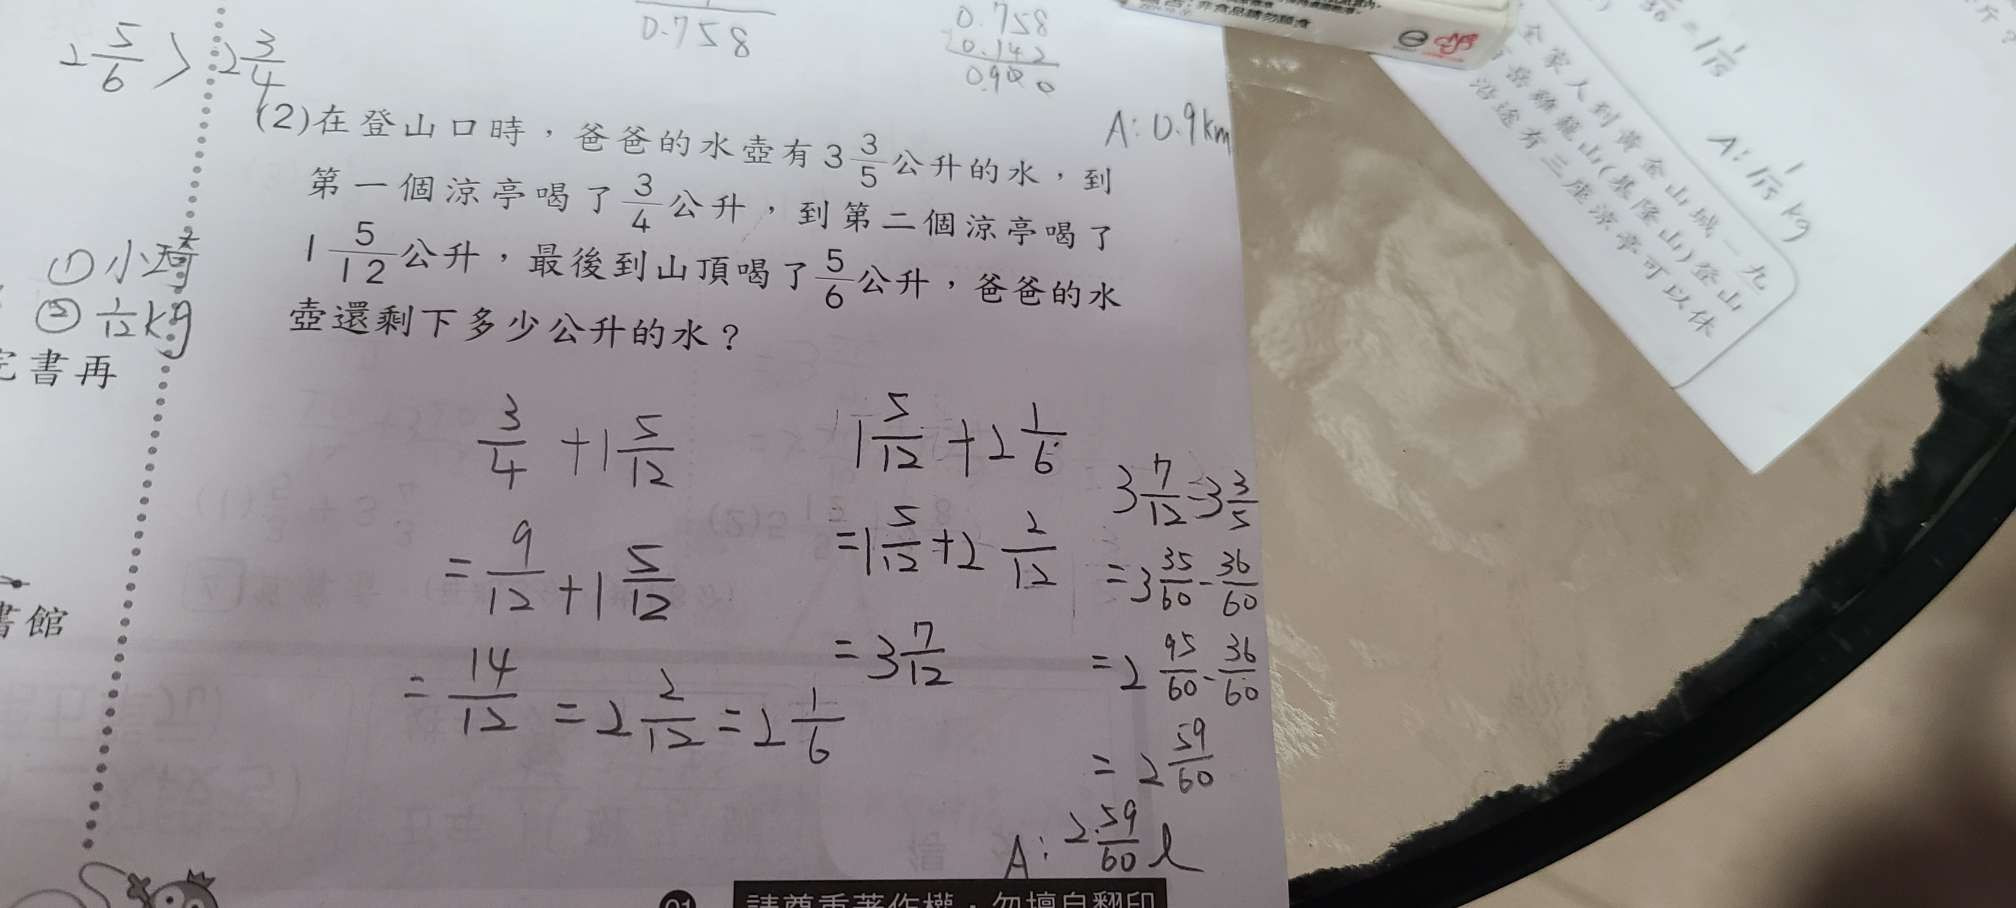 2 5/6 > 2 3/4
0.758
0.758
0.142
0.900
A: 0.9km
(2)在登山口時，爸爸的水壺有3 3/5公升的水，到
第一個涼亭喝了3/4公升，到第二個涼亭喝了
1 5/12公升，最後到山頂喝了5/6公升，爸爸的水
壺還剩下多少公升的水？
① 小琦
② 1/12 kg
書再
書館
3/4 + 1 5/12
= 9/12 + 1 5/12
= 14/12 = 2 2/12 = 2 1/6
1 5/12 + 2 1/6
= 1 5/12 + 2 2/12
= 3 7/12
3 7/12 - 3 3/5
= 3 35/60 - 36/60
= 2 95/60 - 36/60
= 2 59/60
A: 2 59/60 l
= 1 1/15
A: 1 1/15 kg
全家人到黃金山城－九
雞籠山(基隆山)登山
沿途有三座涼亭可以休
非食品請勿誤食
請尊重著作權，勿擅自翻印